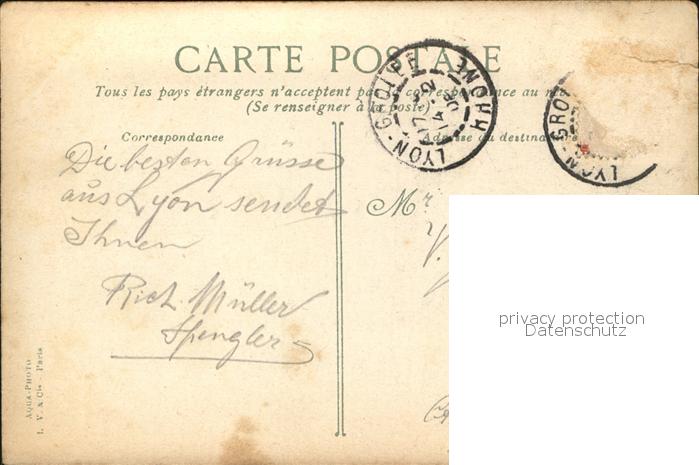 CARTE POSTALE
Tous les pays étrangers n'acceptent pas la correspondance au
(Se renseigner à la poste)
Correspondance
Adresse du destinataire
LYON-GROLÉE RHONE
LYON-GRO
Die besten Grüsse
aus Lyon sendet
Ihnen
Rich Müller
Spengler
Mr
privacy protection
Datenschutz
AQUA-PHOTO
L. V. & Cie Paris